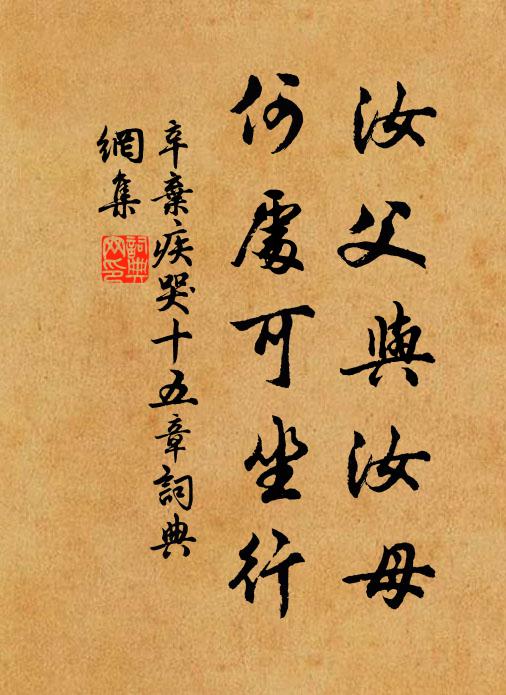 汝父與汝母
何處可坐行
辛棄疾哭十五章詞典
網集
詞典網印